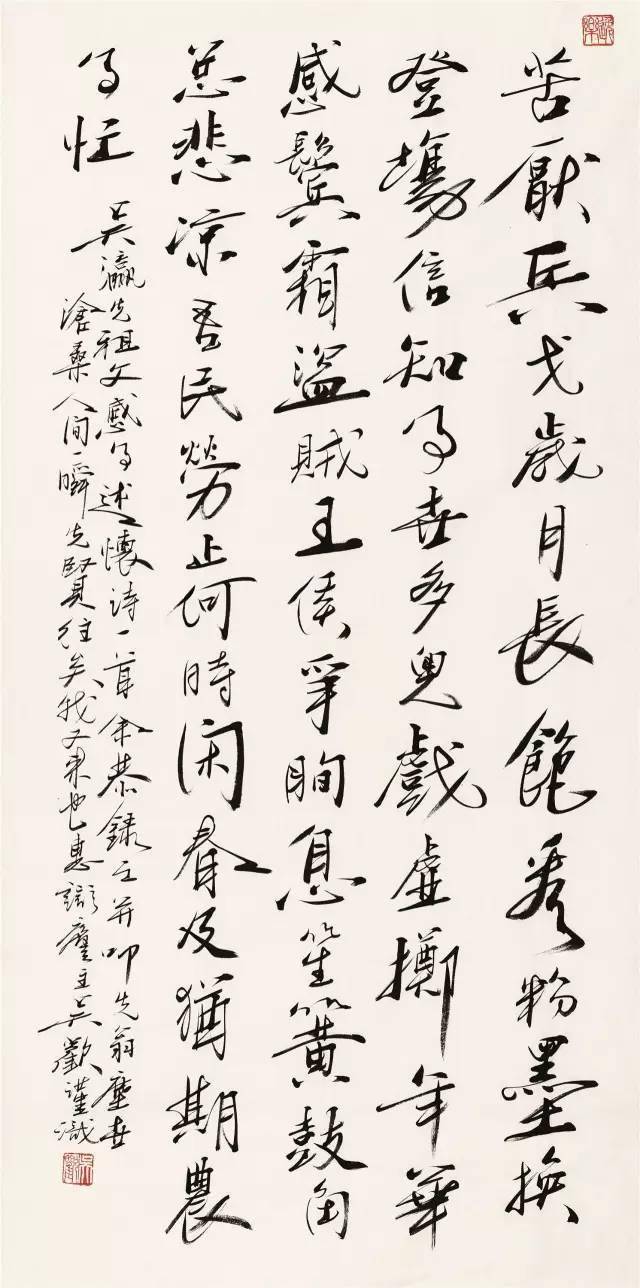 苦厭兵戈歲月長飽看粉墨換
登場信知事世多兒戲虛擲年華
感鬢霜盜賊王侯爭眴息笙簧鼓角
总悲涼吾民勞止何時閑春及猶期農
事忙
吳瀛先祖文感事述懷诗一首余恭錄之并叩先翁塵世
滄桑人间一瞬先賢往矣我又來也惠廬主吳歡謹識